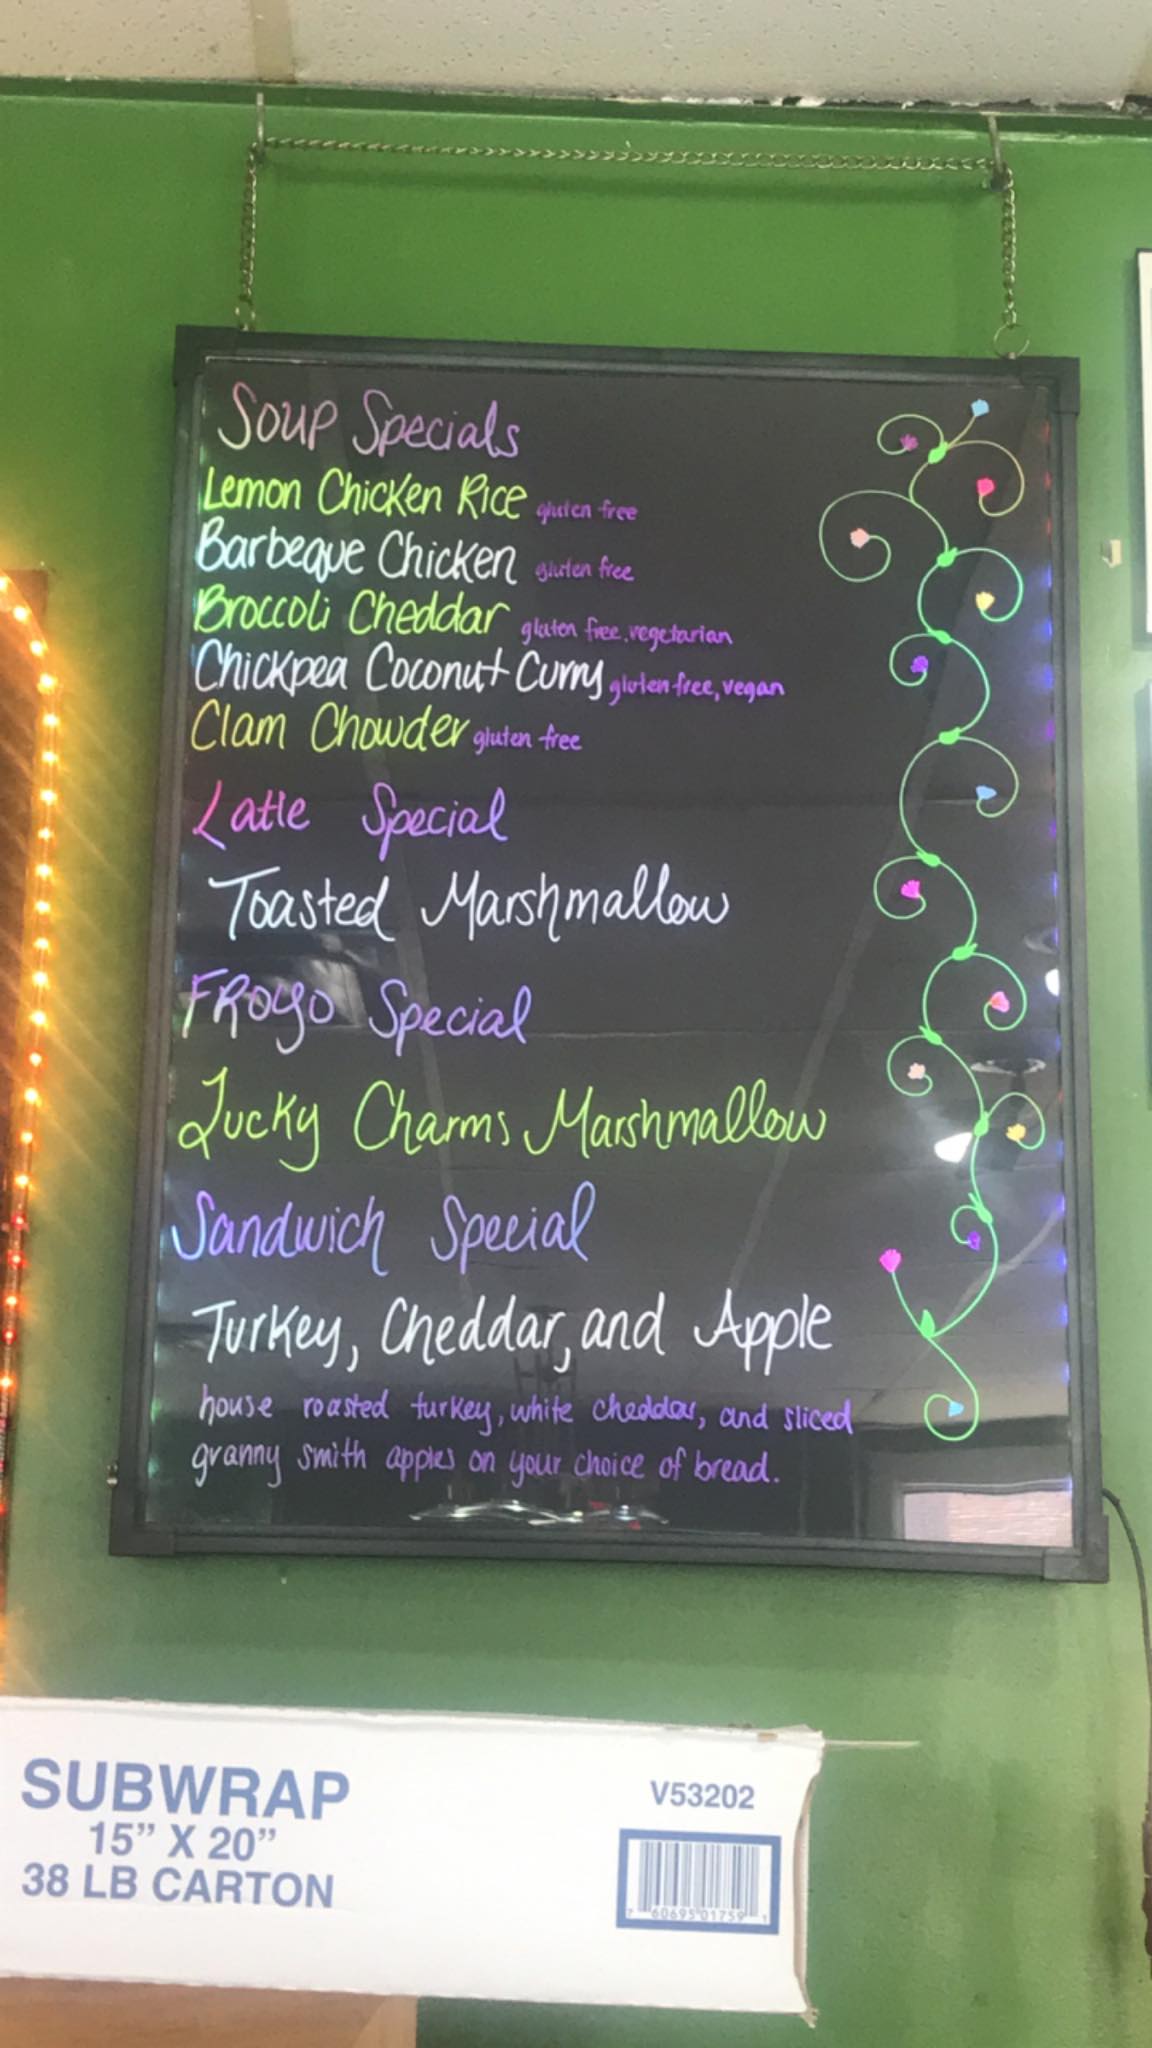 Soup Specials
Lemon Chicken Rice gluten free
Barbeque Chicken gluten free
Broccoli Cheddar gluten free, vegetarian
Chickpea Coconut Curry gluten free, vegan
Clam Chowder gluten free
Latte Special
Toasted Marshmallow
FROYO Special
Lucky Charms Marshmallow
Sandwich Special
Turkey, Cheddar, and Apple
house roasted turkey, white cheddar, and sliced
granny smith apples on your choice of bread.
SUBWRAP
15” X 20”
38 LB CARTON
V53202
7 60695 01759 1